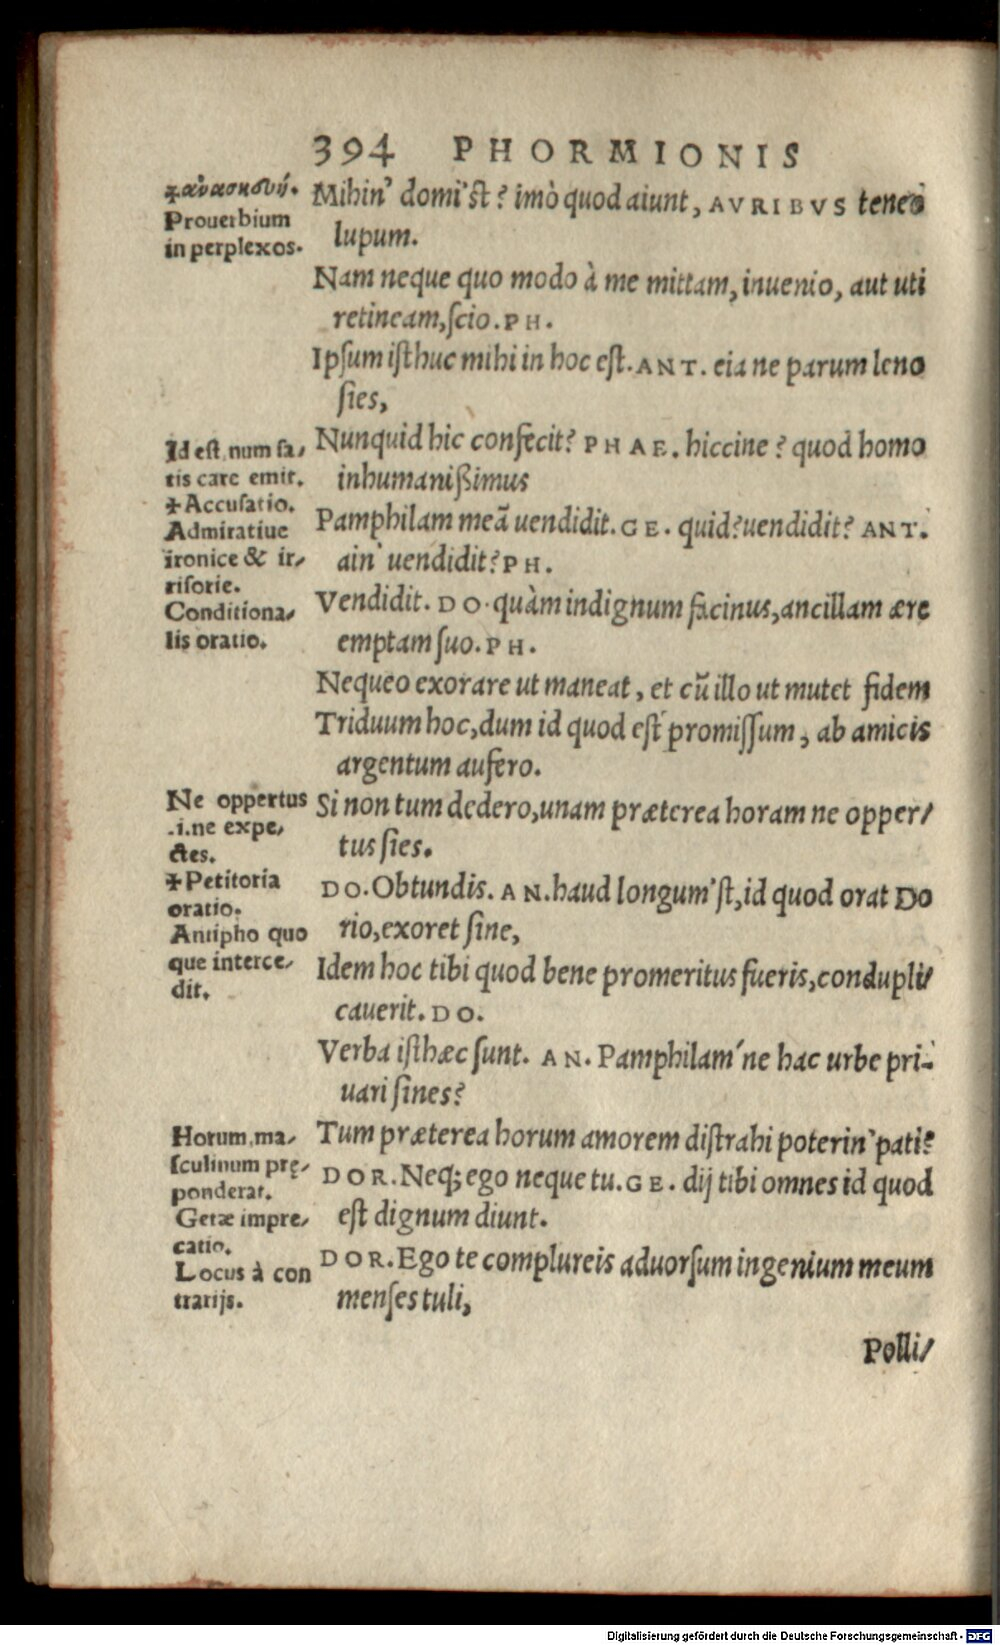 394 PHORMIONIS
Prouerbium
in perplexos.
Id est, num sa/
tis care emit.
✠Accusatio.
Admiratiue
ironice & ir/
risorie.
Conditiona/
lis oratio.
Ne oppertus
.i.ne expe/
ctes.
✠Petitoria
oratio.
Antipho quo
que interce/
dit.
Horum, ma/
sculinum prę/
ponderat.
Getæ impre/
catio.
Locus à con
trarijs.
Mihin' domi'st? imò quod aiunt, AVRIBVS teneo
lupum.
Nam neque quo modo à me mittam, inuenio, aut uti
retineam, scio. PH.
Ipsum isthuc mihi in hoc est. ANT. eia ne parum leno
sies,
Nunquid hic confecit? PHAE. hiccine? quod homo
inhumanißimus
Pamphilam meã uendidit. GE. quid? uendidit? ANT.
ain' uendidit? PH.
Vendidit. DO. quàm indignum facinus, ancillam ære
emptam suo. PH.
Nequeo exorare ut maneat, et cũ illo ut mutet fidem
Triduum hoc, dum id quod est promissum, ab amicis
argentum aufero.
Si non tum dedero, unam præterea horam ne opper/
tus sies.
DO. Obtundis. AN. haud longum'st, id quod orat Do
rio, exoret sine,
Idem hoc tibi quod bene promeritus fueris, condupli/
cauerit. DO.
Verba isthæc sunt. AN. Pamphilam'ne hac urbe pri-
uari sines?
Tum præterea horum amorem distrahi poterin' pati?
DOR. Neq; ego neque tu. GE. dij tibi omnes id quod
est dignum diunt.
DOR. Ego te complureis aduorsum ingenium meum
menses tuli,
Polli/
Digitalisierung gefördert durch die Deutsche Forschungsgemeinschaft - DFG